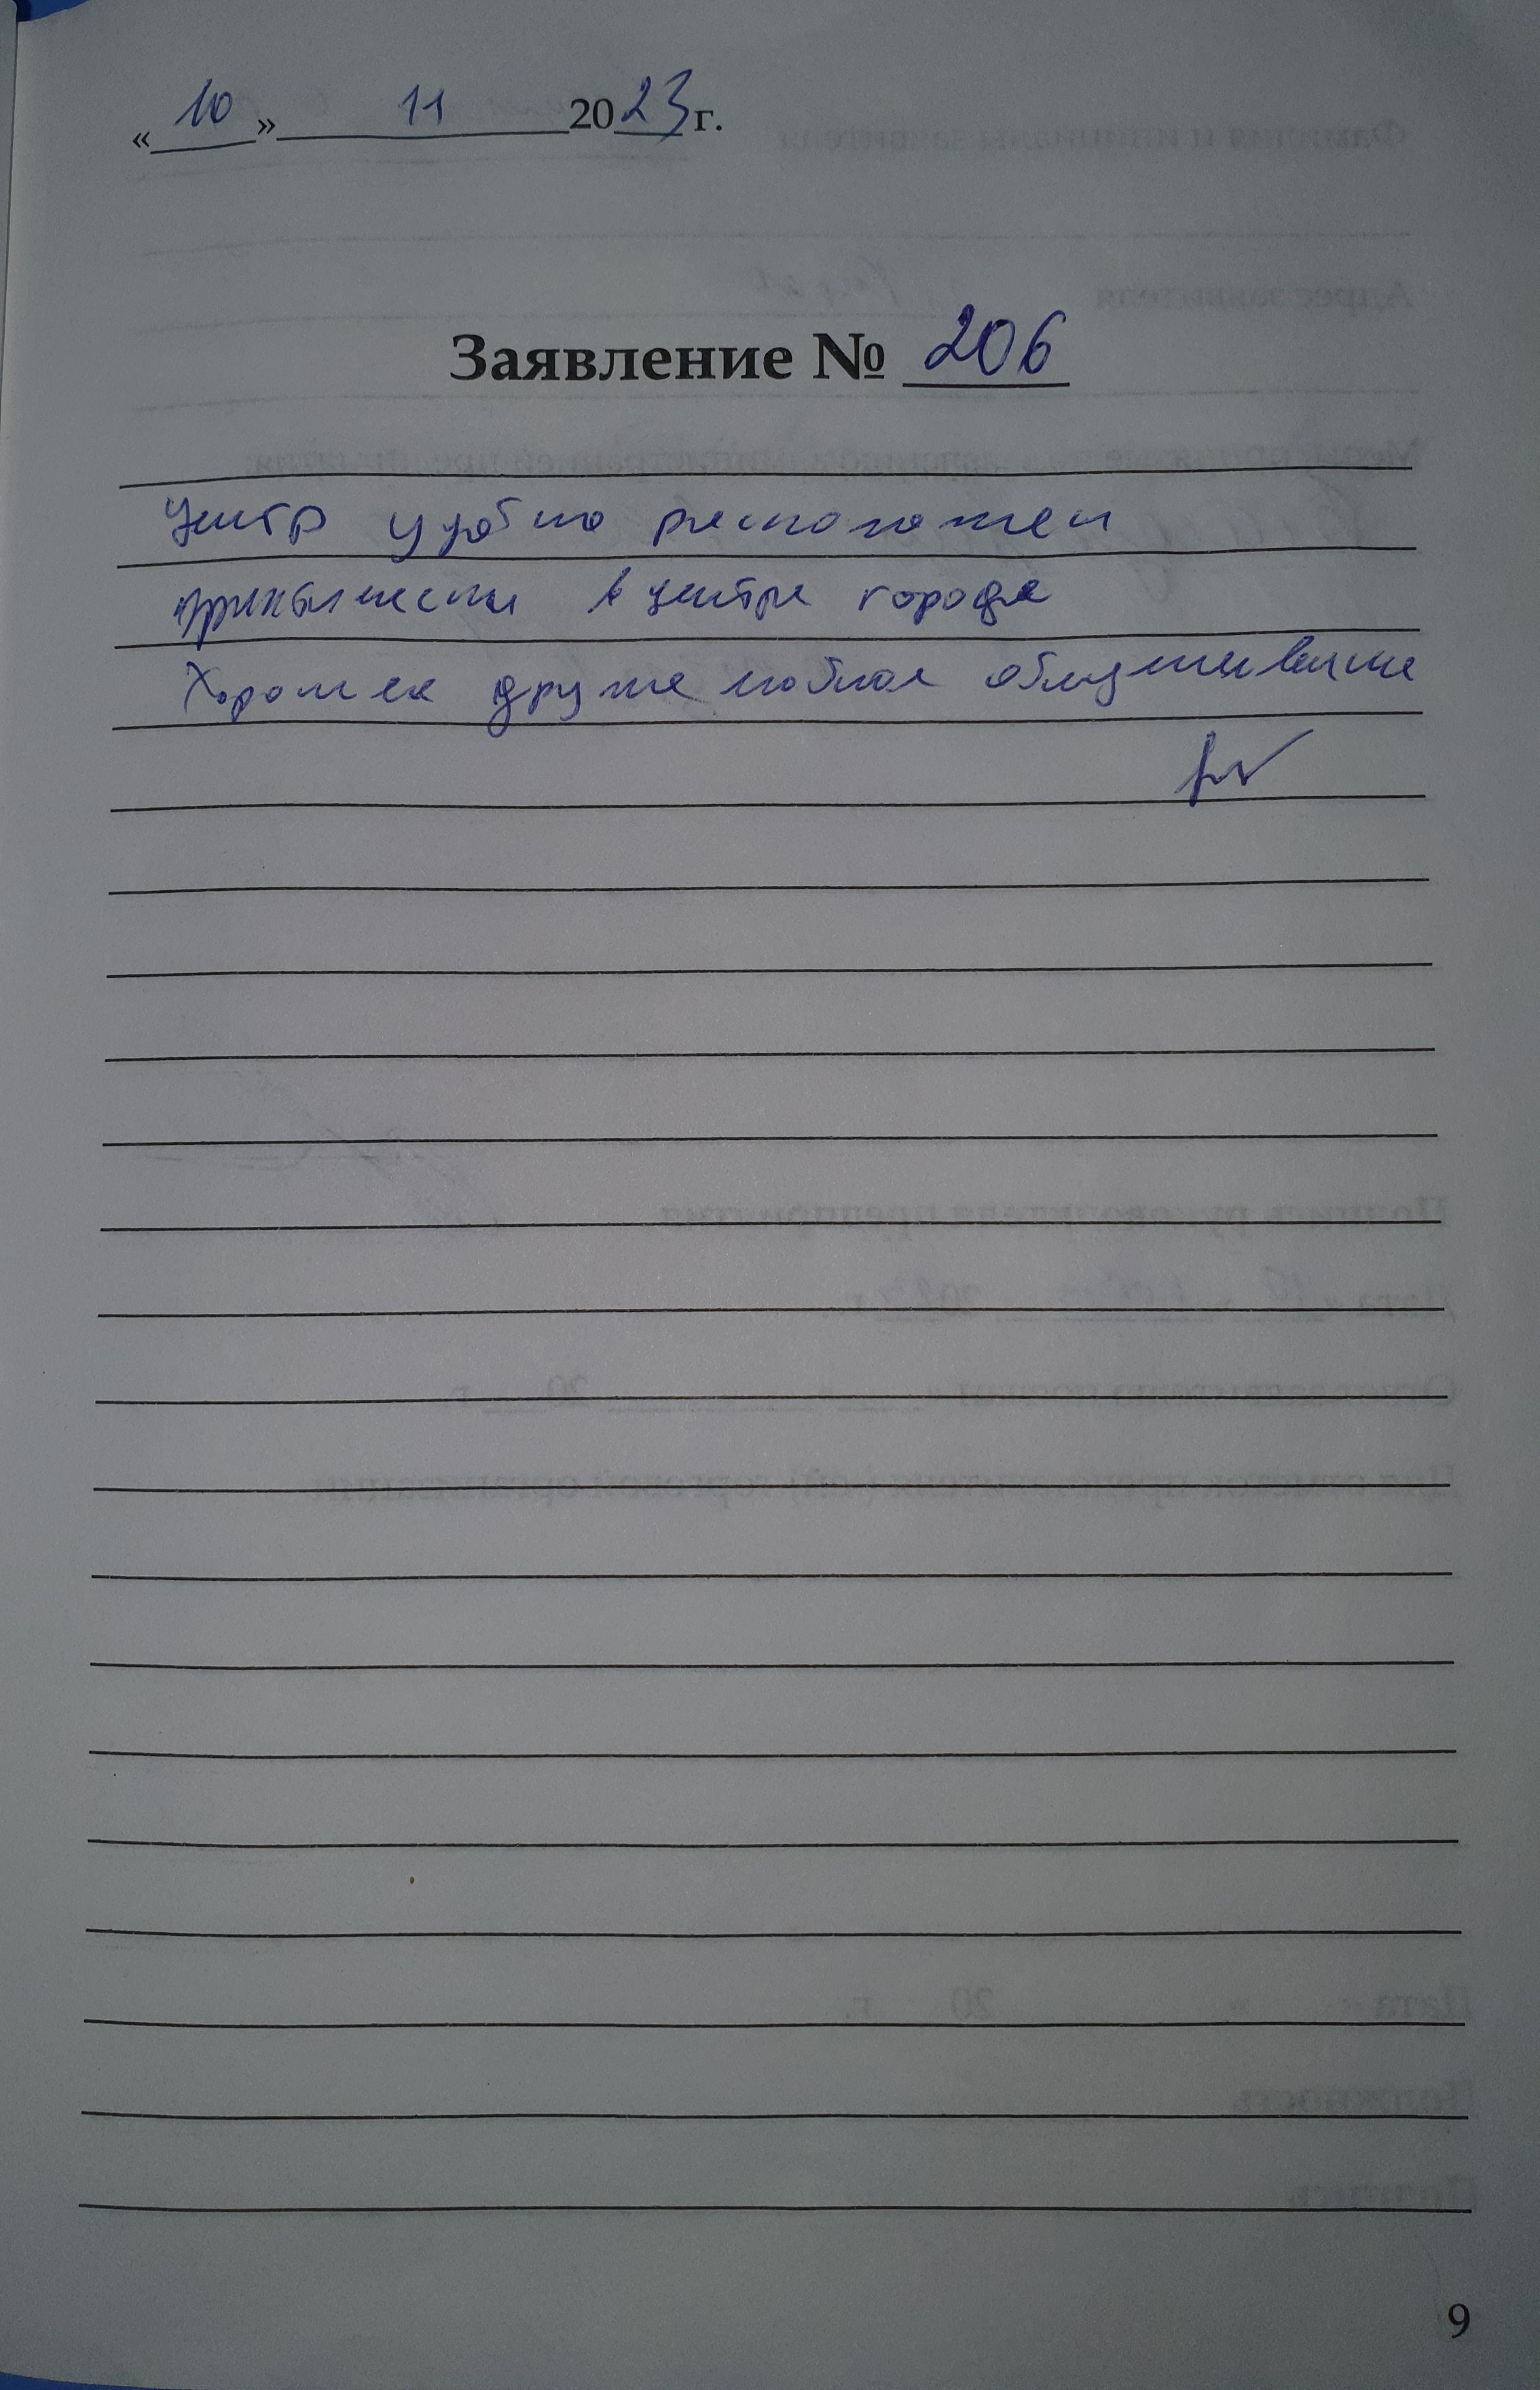 «10» 11 2023 г.
Заявление № 206
Центр удобно расположен
в центре города
Хорошее дружелюбное обслуживание
9